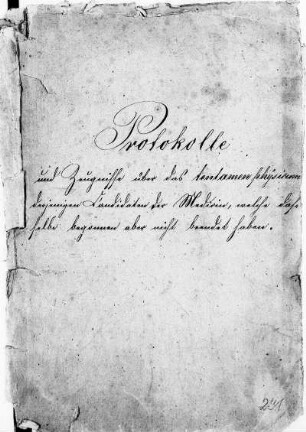 Protokolle
und Zeugnisse über das tentamen physicum
derjenigen Candidaten der Medicin, welche das-
selbe begonnen aber nicht beendet haben.
241